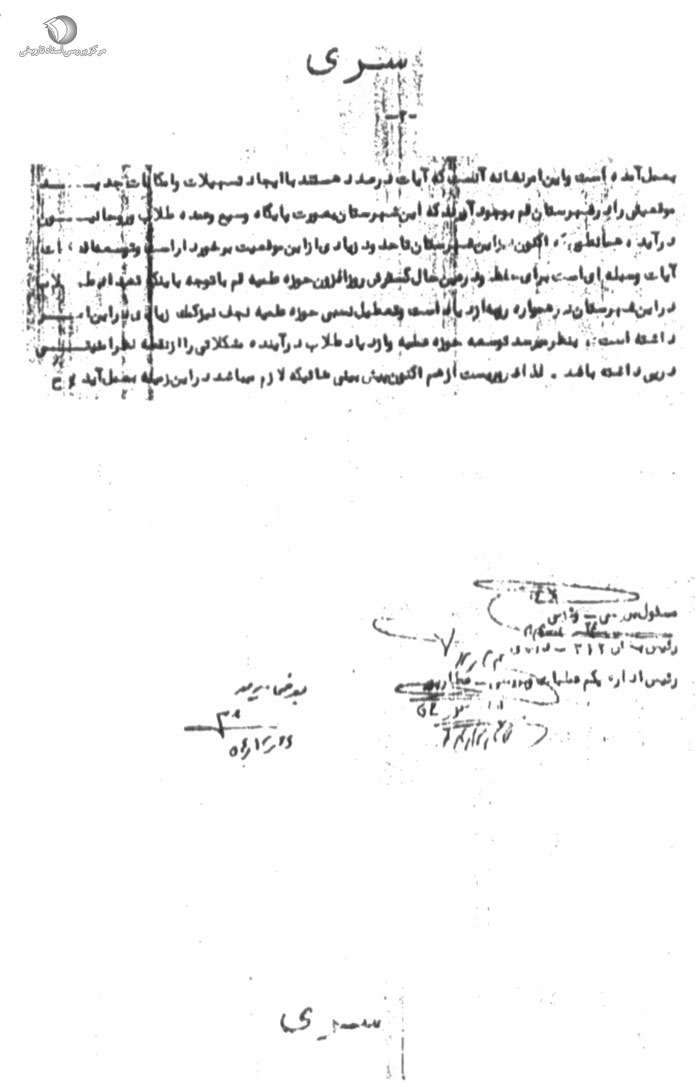 مرکز بررسی اسناد تاریخی
سری
-۲-
بعمل آمده است و این امر نشانه آنست که آیات در صدد هستند با ایجاد تسهیلات و امکانات جدیـــد
موقعیتی را در شهرستان قم بوجود آورند که این شهرستان بصورت پایگاه وسیع و عمده طلاب و روحانیـــون
در آید ، همانطوریکه اکنون نیز این شهرستان تا حدود زیادی از این موقعیت برخوردار است و توسعه
آیات وسیله ای است برای حفظ و در عین حال گسترش روز افزون حوزه علمیه قم با توجه باینکه تعداد طلاب
در این شهرستان همواره رو به ازدیاد است و تعطیل نسبی حوزه علمیه نجف نیز کمک زیادی در این امـــر
داشته است . بنظر میرسد توسعه حوزه علمیه و ازدیاد طلاب در آینده مشکلاتی را از نقطه نظر امنیتـــی
در پی داشته باشد . لذا ضروریست از هم اکنون پیش بینی هائیکه لازم میباشد در این زمینه بعمل آید
مسئول بررسی
رئیس بخش ۳۱۲
رئیس اداره یکم عملیات و بررسی
سری